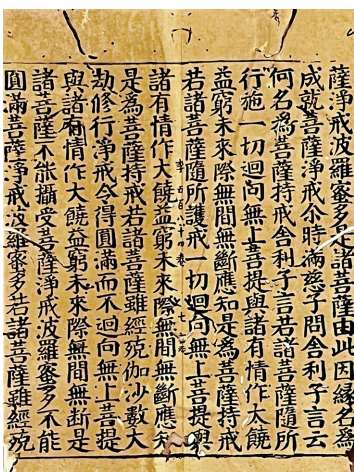 薩淨戒波羅蜜多是諸菩薩由此因縁名為
成就菩薩淨戒尒時滿慈子問舍利子言云
何名為菩薩持戒舍利子言若諸菩薩隨所
行施一切迴向無上菩提與諸有情作大饒
益窮未來際無間無斷應知是為菩薩持戒
若諸菩薩隨所護戒一切迴向無上菩提與
諸有情作大饒益窮未來際無間無斷應知
是為菩薩持戒若諸菩薩雖經殑伽沙數大
劫修行淨戒令得圓滿而不迴向無上菩提
與諸有情作大饒益窮未來際無間無斷是
諸菩薩不能攝受菩薩淨戒波羅蜜多不能
圓滿菩薩淨戒波羅蜜多若諸菩薩雖經殑